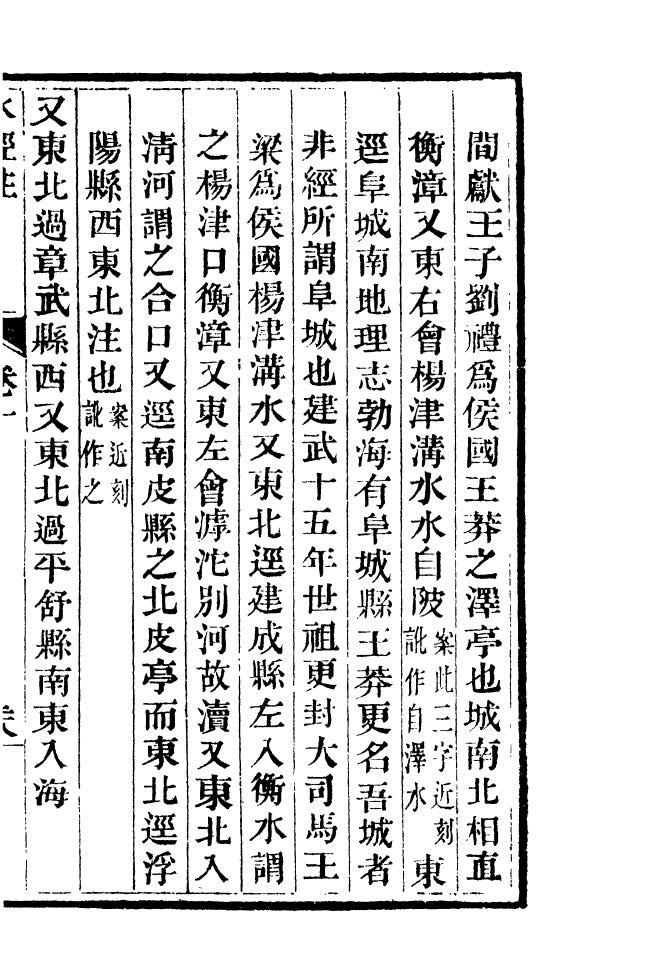 間獻王子劉禮爲侯國王莽之澤亭也城南北相直
衡漳又東右會楊津溝水水自陂案此三字近刻訛作自澤水東
逕阜城南地理志勃海有阜城縣王莽更名吾城者
非經所謂阜城也建武十五年世祖更封大司馬王
梁爲侯國楊津溝水又東北逕建成縣左入衡水謂
之楊津口衡漳又東左會滹沱別河故瀆又東北入
清河謂之合口又逕南皮縣之北皮亭而東北逕浮
陽縣西東北注也案近刻訛作之
又東北過章武縣西又東北過平舒縣南東入海
水經注 卷十